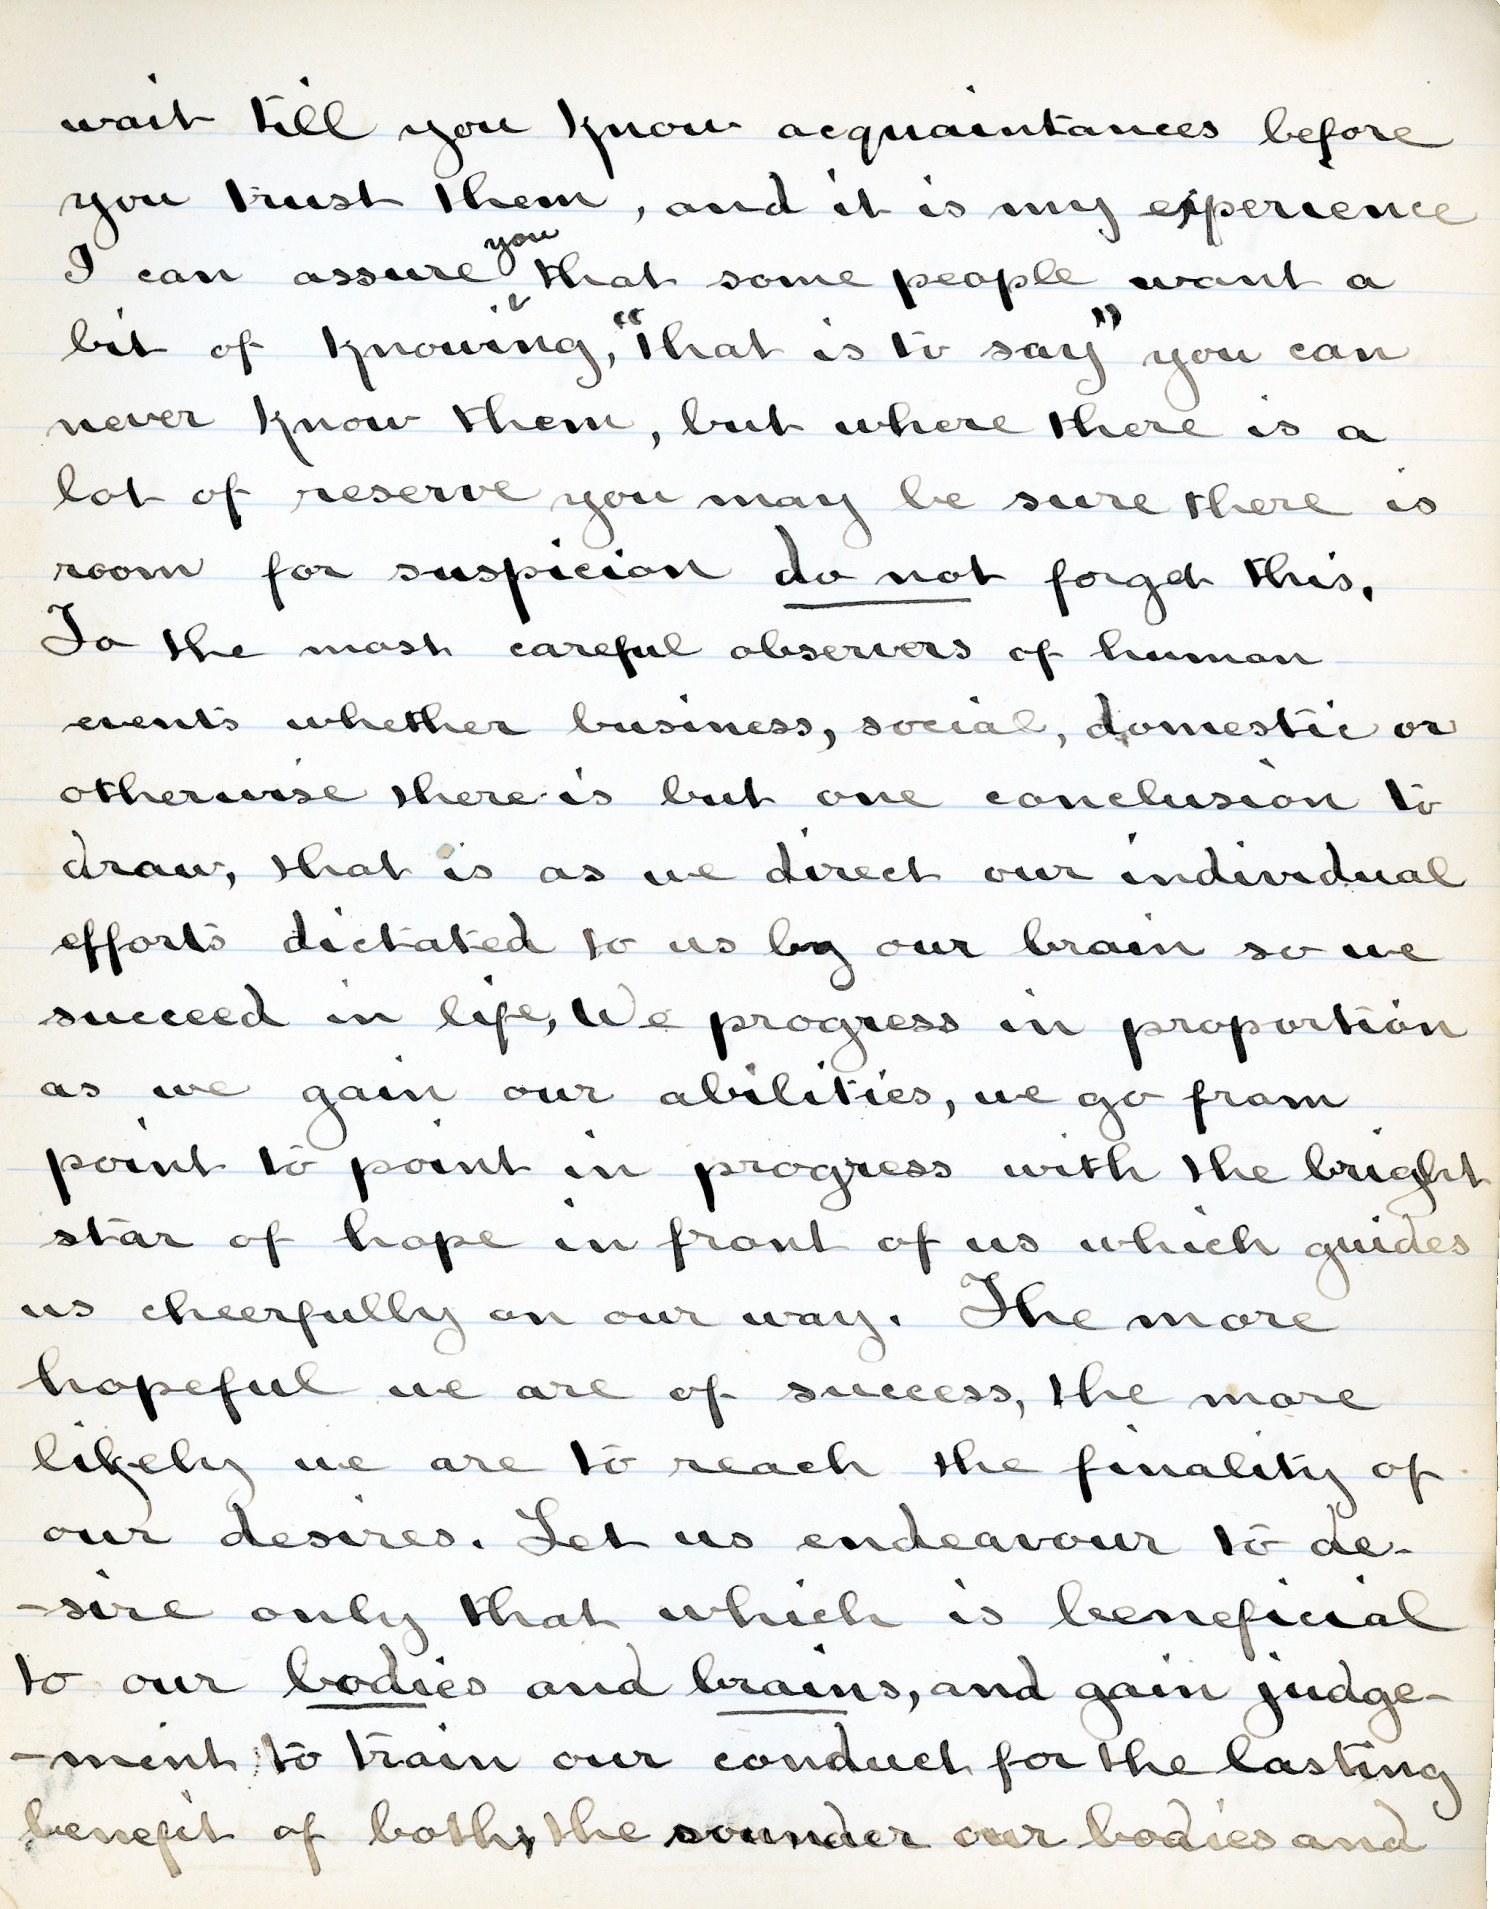 wait till you know acquaintances before
you trust them, and it is my experience
I can assure you that some people want a
bit of knowing, "that is to say" you can
never know them, but where there is a
lot of reserve you may be sure there is
room for suspicion do not forget this.
To the most careful observers of human
events whether business, social, domestic or
otherwise there is but one conclusion to
draw, that is as we direct our individual
efforts dictated to us by our brain so we
succeed in life, We progress in proportion
as we gain our abilities, we go from
point to point in progress with the bright
star of hope in front of us which guides
us cheerfully on our way. The more
hopeful we are of success, the more
likely we are to reach the finality of
our desires. Let us endeavour to de-
-sire only that which is beneficial
to our bodies and brains, and gain judge-
-ment to train our conduct for the lasting
benefit of both, the sounder our bodies and